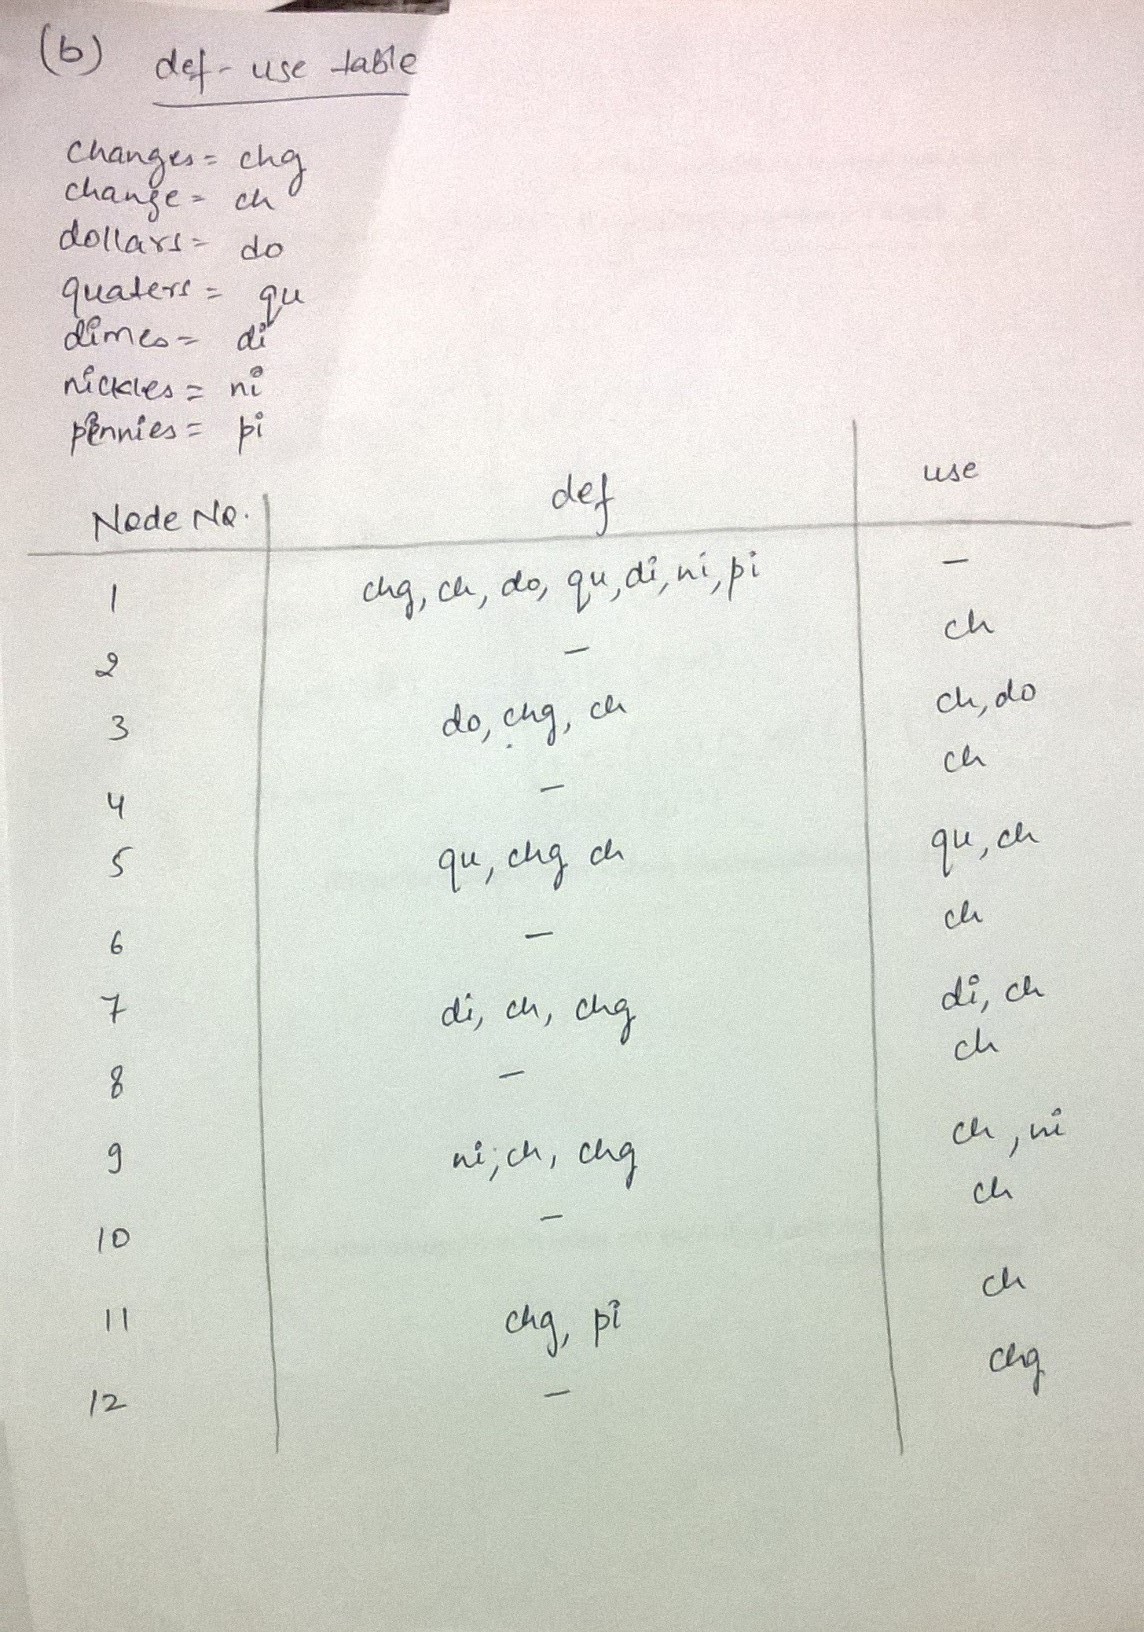 (b) def-use table
changes = chg
change = ch
dollars = do
quaters = qu
dimes = di
nickles = ni
pennies = pi
Node No. def use
1 chg, ch, do, qu, di, ni, pi –
2 – ch
3 do, chg, ch ch, do
4 – ch
5 qu, chg ch qu, ch
6 – ch
7 di, ch, chg di, ch
8 – ch
9 ni, ch, chg ch, ni
10 – ch
11 chg, pi ch
12 – chg